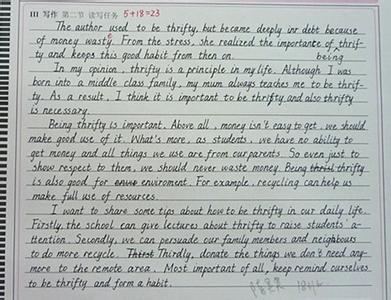 III 写作 第二节 读写任务 5+18=23
The author used to be thrifty, but became deeply inr debt because
of money wasty. From the stress, she realized the importance of thrif-
ty and keeps this good habit from then on. being
In my opinion, thrifty is a principle in my life. Although I was
born into a middle class family, my mum always teaches me to be thrif-
ty. As a result, I think it is important to be thrifty,and also thrifty
is necessary.
Being thrifty is important. Above all, money isn't easy to get, we should
make good use of it. What's more, as students, we have no ability to
get money and all things we use are from our parents. So even just to
show respect to them, we should never waste money. Being thrifty
is also good for enviroment. For example, recycling can help us
make full use of resources.
I want to share some tips about how to be thrifty in our daily life.
Firstly, the school can give lectures about thrifty to raise students' a-
ttention. Secondly, we can persuade our family members and neighbours
to do more recycle. Thirdly, donate the things we don't need any-
more to the remote area. Most important of all, keep remind ourselves
to be thrifty and form a habit.